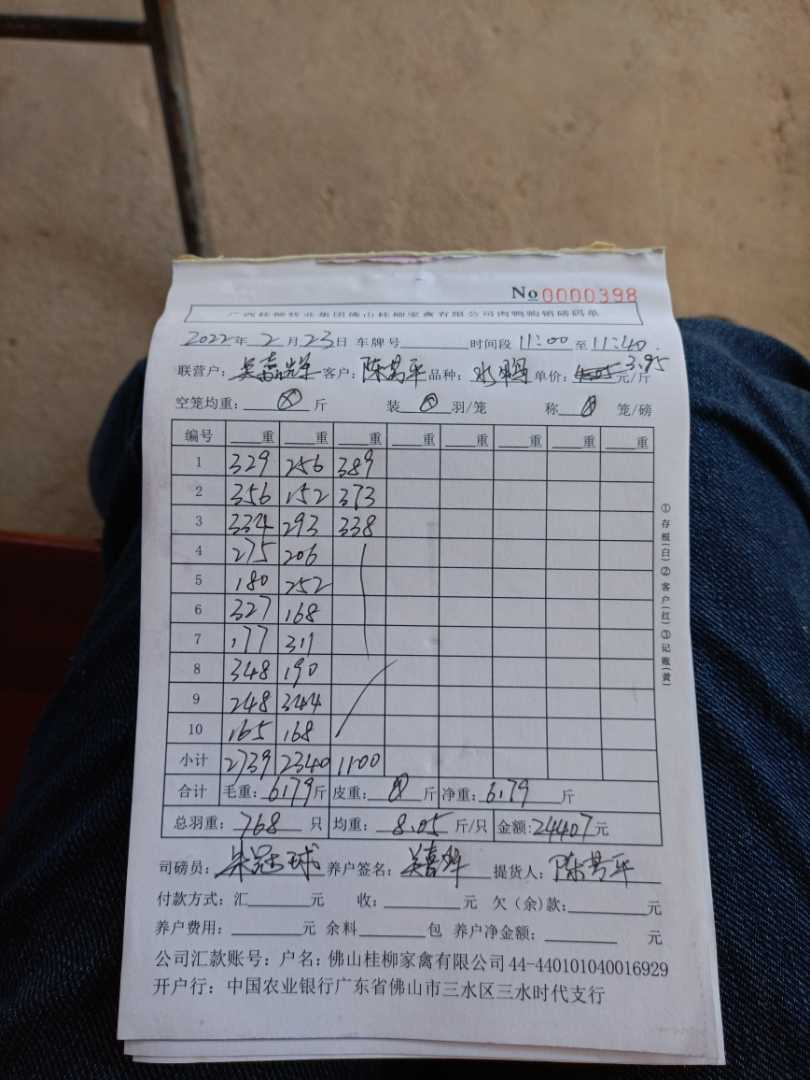 No 0000398
广西桂柳牧业集团佛山桂柳家禽有限公司肉鸭购销磅码单
2022年2月23日 车牌号 时间段 11:00 至 11:40.
联营户: 客户: 陈昌平 品种: 水鸭 单价: 4.05 3.95 元/斤
空笼均重: 斤 装 羽/笼 称 笼/磅
编号 重 重 重 重 重 重 重 重
1 329 256 389
2 356 152 373
3 334 293 338
4 275 206
5 180 252
6 327 168
7 177 311
8 348 190
9 248 344
10 165 168
小计 2739 2340 1100
合计 毛重: 6179 斤 皮重: 斤 净重: 6179 斤
总羽重: 768 只 均重: 8.05 斤/只 金额: 24407 元
司磅员: 朱冠球 养户签名: 提货人: 陈昌平
付款方式: 汇 元 收: 元 欠(余)款: 元
养户费用: 元 余料 包 养户净金额: 元
公司汇款账号: 户名: 佛山桂柳家禽有限公司 44-440101040016929
开户行: 中国农业银行广东省佛山市三水区三水时代支行
①存根(白)②客户(红)③记账(黄)